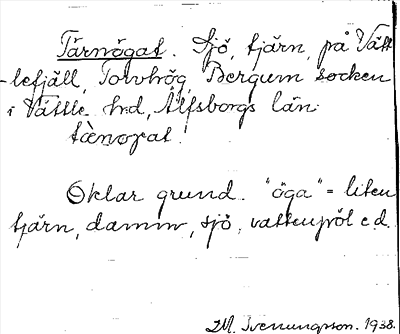 Tärnögat. Sjö, tjärn, på Vätt-
lefjäll, Torvhög, Bergum socken
i Vättle hd, Älfsborgs län.
Oklar grund. "öga" = liten
tjärn, damm, sjö, vattenpöl e.d.
Svenungsson. 1938.